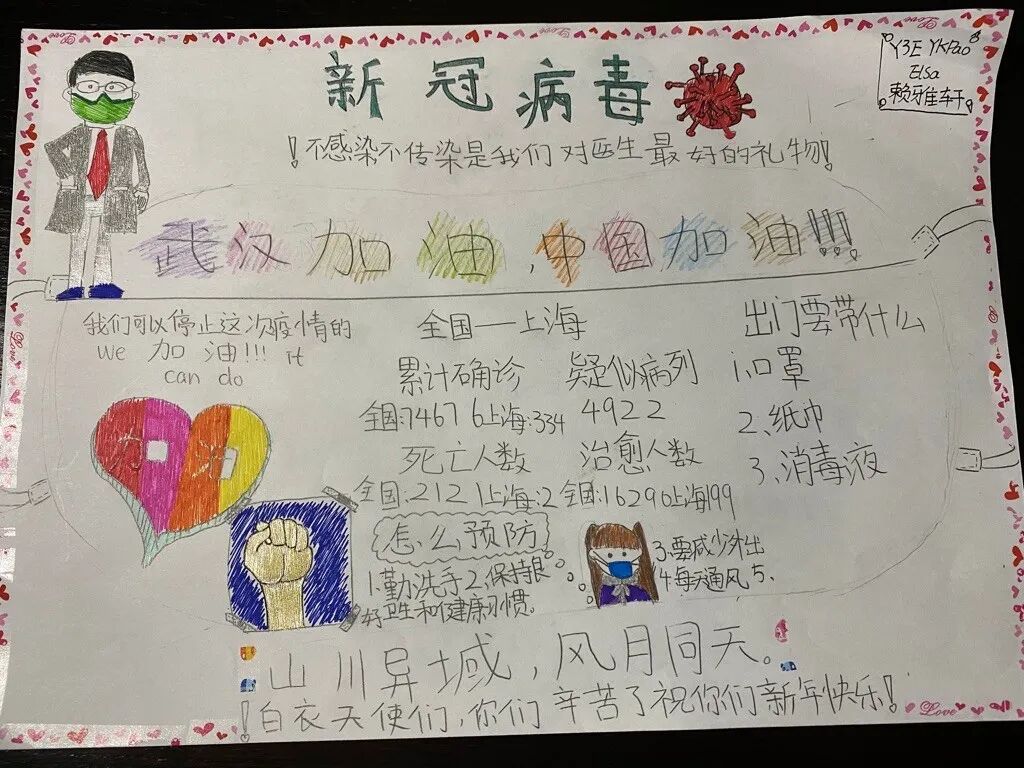 新冠病毒
Y3E YKPao
Elsa
赖雅轩
!不感染不传染是我们对医生最好的礼物!
武汉加油,中国加油!!!
我们可以停止这次疫情的
we 加油!!! It
can do
加油
全国——上海
累计确诊 疑似病列
全国:74676上海:334 4922
死亡人数 治愈人数
全国:2121上海:2 全国:16290上海99
出门要带什么
1.口罩
2、纸巾
3、消毒液
怎么预防
1.勤洗手2.保持良
好卫生和健康习惯。
3.要减少外出
4.每天通风5、
山川异域,风月同天。
!白衣天使们,你们辛苦了祝你们新年快乐!
Love